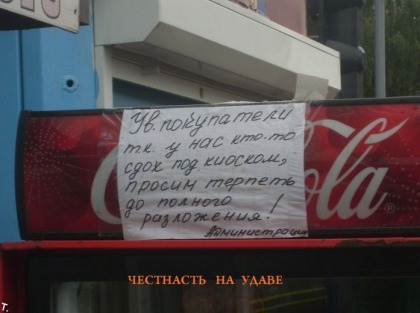 Ув. покупатели
т.к. у нас кто-то
сдох под киоском,
просим терпеть
до полного
разложения!
Администрация
Cola
ЧЕСТНАСТЬ НА УДАВЕ
т.